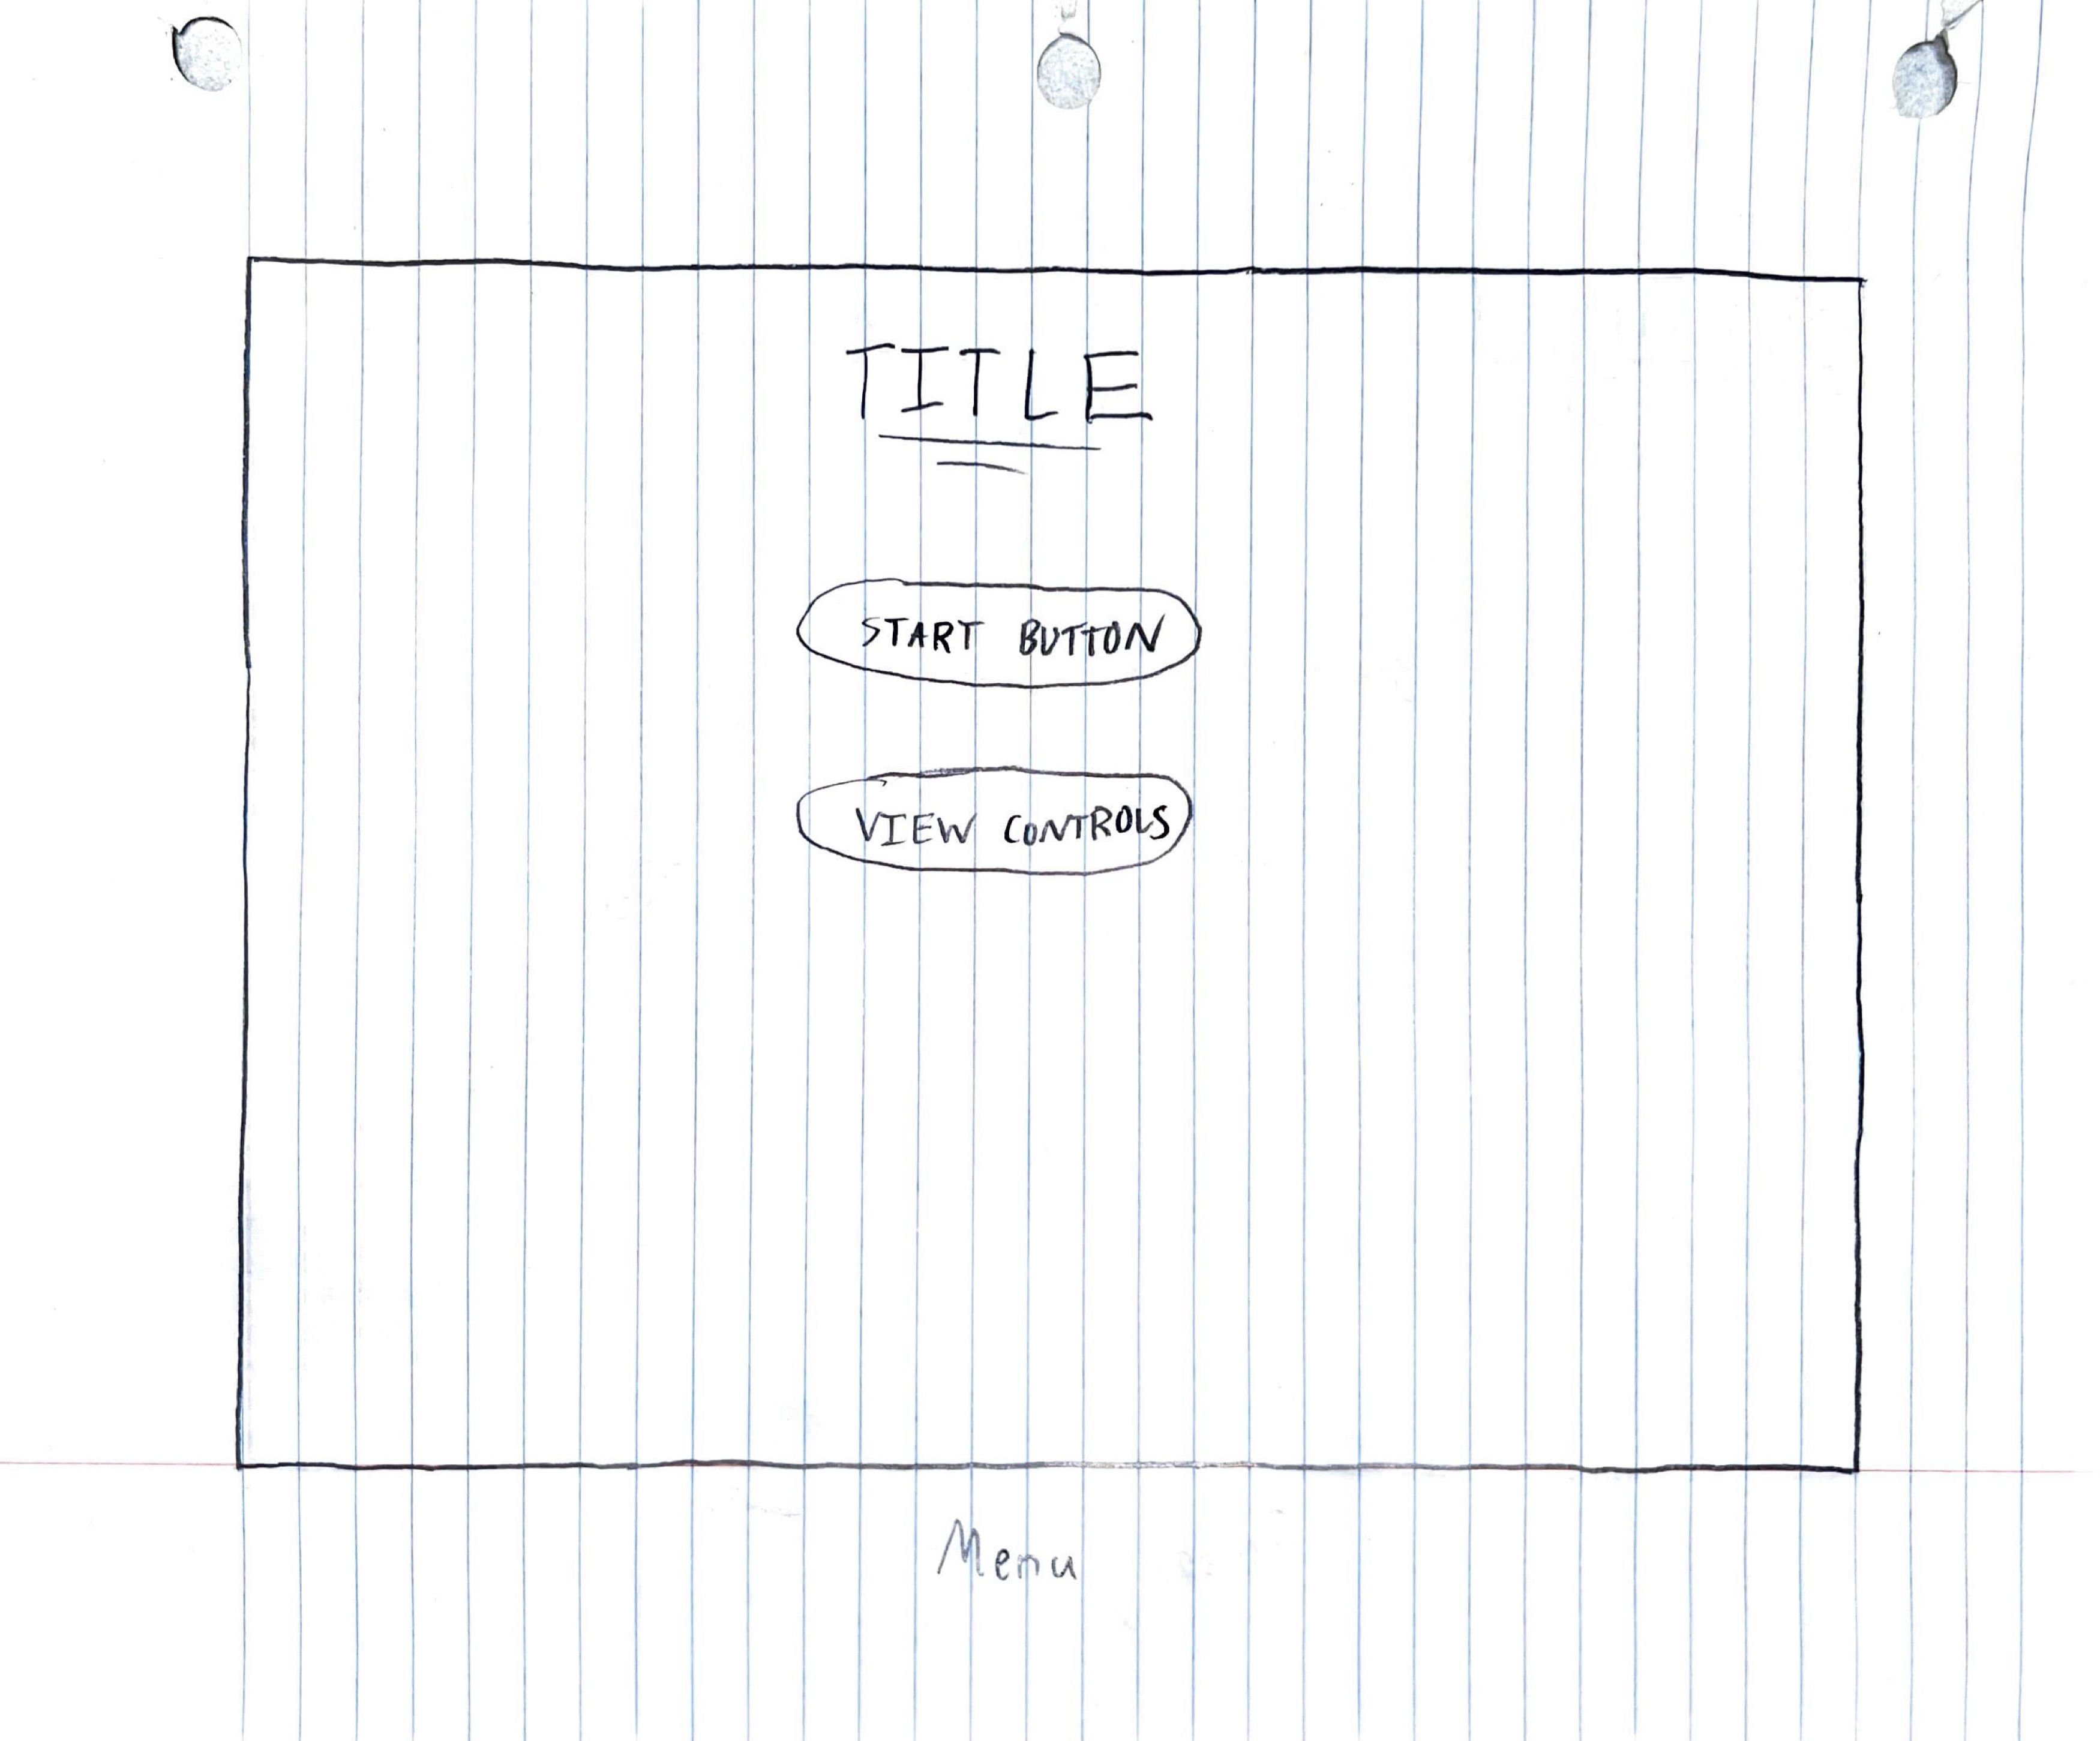 TITLE
START BUTTON
VIEW CONTROLS
Menu